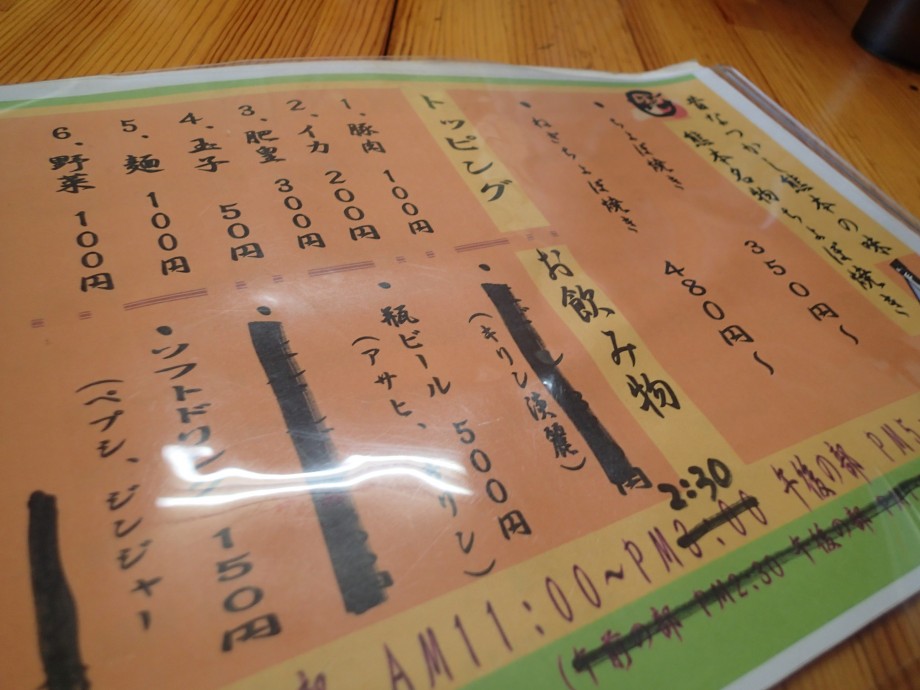 昔なつかし熊本の味
熊本名物ちょぼ焼き
・ちょぼ焼き 350円~
・ねぎちょぼ焼き 480円~
トッピング
1、豚肉 100円
2、イカ 200円
3、肥皇 300円
4、玉子 50円
5、麺 100円
6、野菜 100円
お飲み物
・
円
(キリン淡麗)
・瓶ビール 500円
(アサヒ、キリン)
・
・ソフトドリンク 150円
(ペプシ、ジンジャー
AM11:00~PM3:00 2:30 午後の部 PM5
(午前の部 PM2:30 午後の部